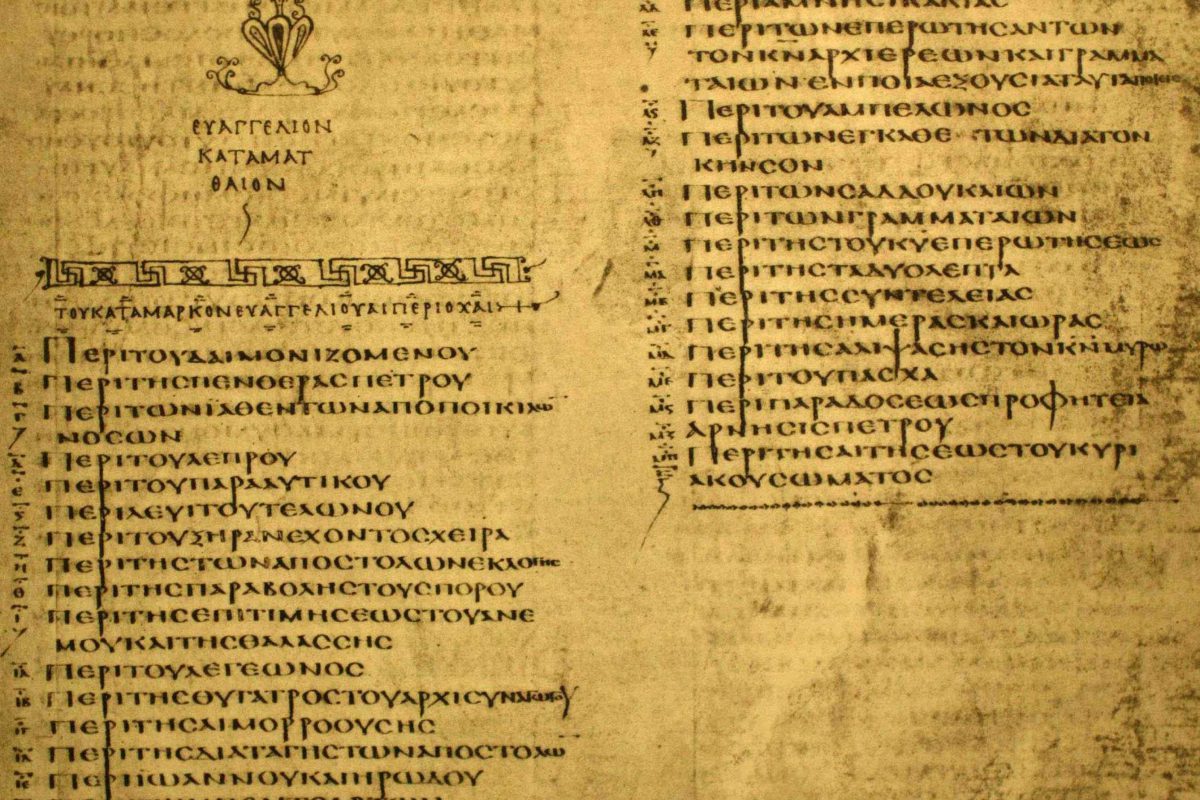 ΕΥΑΓΓΕΛΙΟΝ
ΚΑΤΑΜΑΤ
ΘΑΙΟΝ
ΤΟΥΚΑΤΑΜΑΡΚΟΝΕΥΑΓΓΕΛΙΟΥΑΙΠΕΡΙΟΧΑΙ
Α ΠΕΡΙΤΟΥΔΑΙΜΟΝΙΖΟΜΕΝΟΥ
Β ΠΕΡΙΤΗϹΠΕΝΘΕΡΑϹΠΕΤΡΟΥ
Γ ΠΕΡΙΤΩΝΪΑΘΕΝΤΩΝΑΠΟΠΟΙΚΙΛΩ
ΝΟϹΩΝ
Δ ΠΕΡΙΤΟΥΛΕΠΡΟΥ
Ε ΠΕΡΙΤΟΥΠΑΡΑΛΥΤΙΚΟΥ
Ϛ ΠΕΡΙΛΕΥΙΤΟΥΤΕΛΩΝΟΥ
Ζ ΠΕΡΙΤΟΥΞΗΡΑΝΕΧΟΝΤΟϹΧΕΙΡΑ
Η ΠΕΡΙΤΗϹΤΩΝΑΠΟϹΤΟΛΩΝΕΚΛΟΓΗϹ
Θ ΠΕΡΙΤΗϹΠΑΡΑΒΟΛΗϹΤΟΥϹΠΟΡΟΥ
Ι ΠΕΡΙΤΗϹΕΠΙΤΙΜΗϹΕΩϹΤΟΥΑΝΕ
ΜΟΥΚΑΙΤΗϹΘΑΛΑϹϹΗϹ
ΙΑ ΠΕΡΙΤΟΥΛΕΓΕΩΝΟϹ
ΙΒ ΠΕΡΙΤΗϹΘΥΓΑΤΡΟϹΤΟΥΑΡΧΙϹΥΝΑΓΩΓΟΥ
ΙΓ ΠΕΡΙΤΗϹΑΙΜΟΡΡΟΟΥϹΗϹ
ΙΔ ΠΕΡΙΤΗϹΔΙΑΤΑΓΗϹΤΩΝΑΠΟϹΤΟΛΩ
ΙΕ ΠΕΡΙΪΩΑΝΝΟΥΚΑΙΗΡΩΔΟΥ
ΛΕ ΠΕΡΙΤΩΝΕΠΕΡΩΤΗϹΑΝΤΩΝ
ΤΟΝΚΝΑΡΧΙΕΡΕΩΝΚΑΙΓΡΑΜΜΑ
ΤΑΙΩΝΕΝΠΟΙΑΕΞΟΥϹΙΑΤΑΥΤΑΠΟΙΕΙϹ
ΛϚ ΠΕΡΙΤΟΥΑΜΠΕΛΩΝΟϹ
ΛΖ ΠΕΡΙΤΩΝΕΓΚΑΘΕ ΤΩΝΔΙΑΤΟΝ
ΚΗΝϹΟΝ
ΛΗ ΠΕΡΙΤΩΝϹΑΔΔΟΥΚΑΙΩΝ
ΛΘ ΠΕΡΙΤΩΝΓΡΑΜΜΑΤΑΙΩΝ
Μ ΠΕΡΙΤΗϹΤΟΥΚΥΕΠΕΡΩΤΗϹΕΩϹ
ΜΑ ΠΕΡΙΤΗϹΤΑΔΥΟΛΕΠΤΑ
ΜΒ ΠΕΡΙΤΗϹϹΥΝΤΕΛΕΙΑϹ
ΜΓ ΠΕΡΙΤΗϹΗΜΕΡΑϹΚΑΙΩΡΑϹ
ΜΔ ΠΕΡΙΤΗϹΑΛΙΨΑϹΗϹΤΟΝΚΝΜΥΡΩ
ΜΕ ΠΕΡΙΤΟΥΠΑϹΧΑ
ΜϚ ΠΕΡΙΠΑΡΑΔΟϹΕΩϹΠΡΟΦΗΤΕΙΑ
ΜΖ ΑΡΝΗϹΙϹΠΕΤΡΟΥ
ΜΗ ΠΕΡΙΤΗϹΑΙΤΗϹΕΩϹΤΟΥΚΥΡΙ
ΑΚΟΥϹΩΜΑΤΟϹ